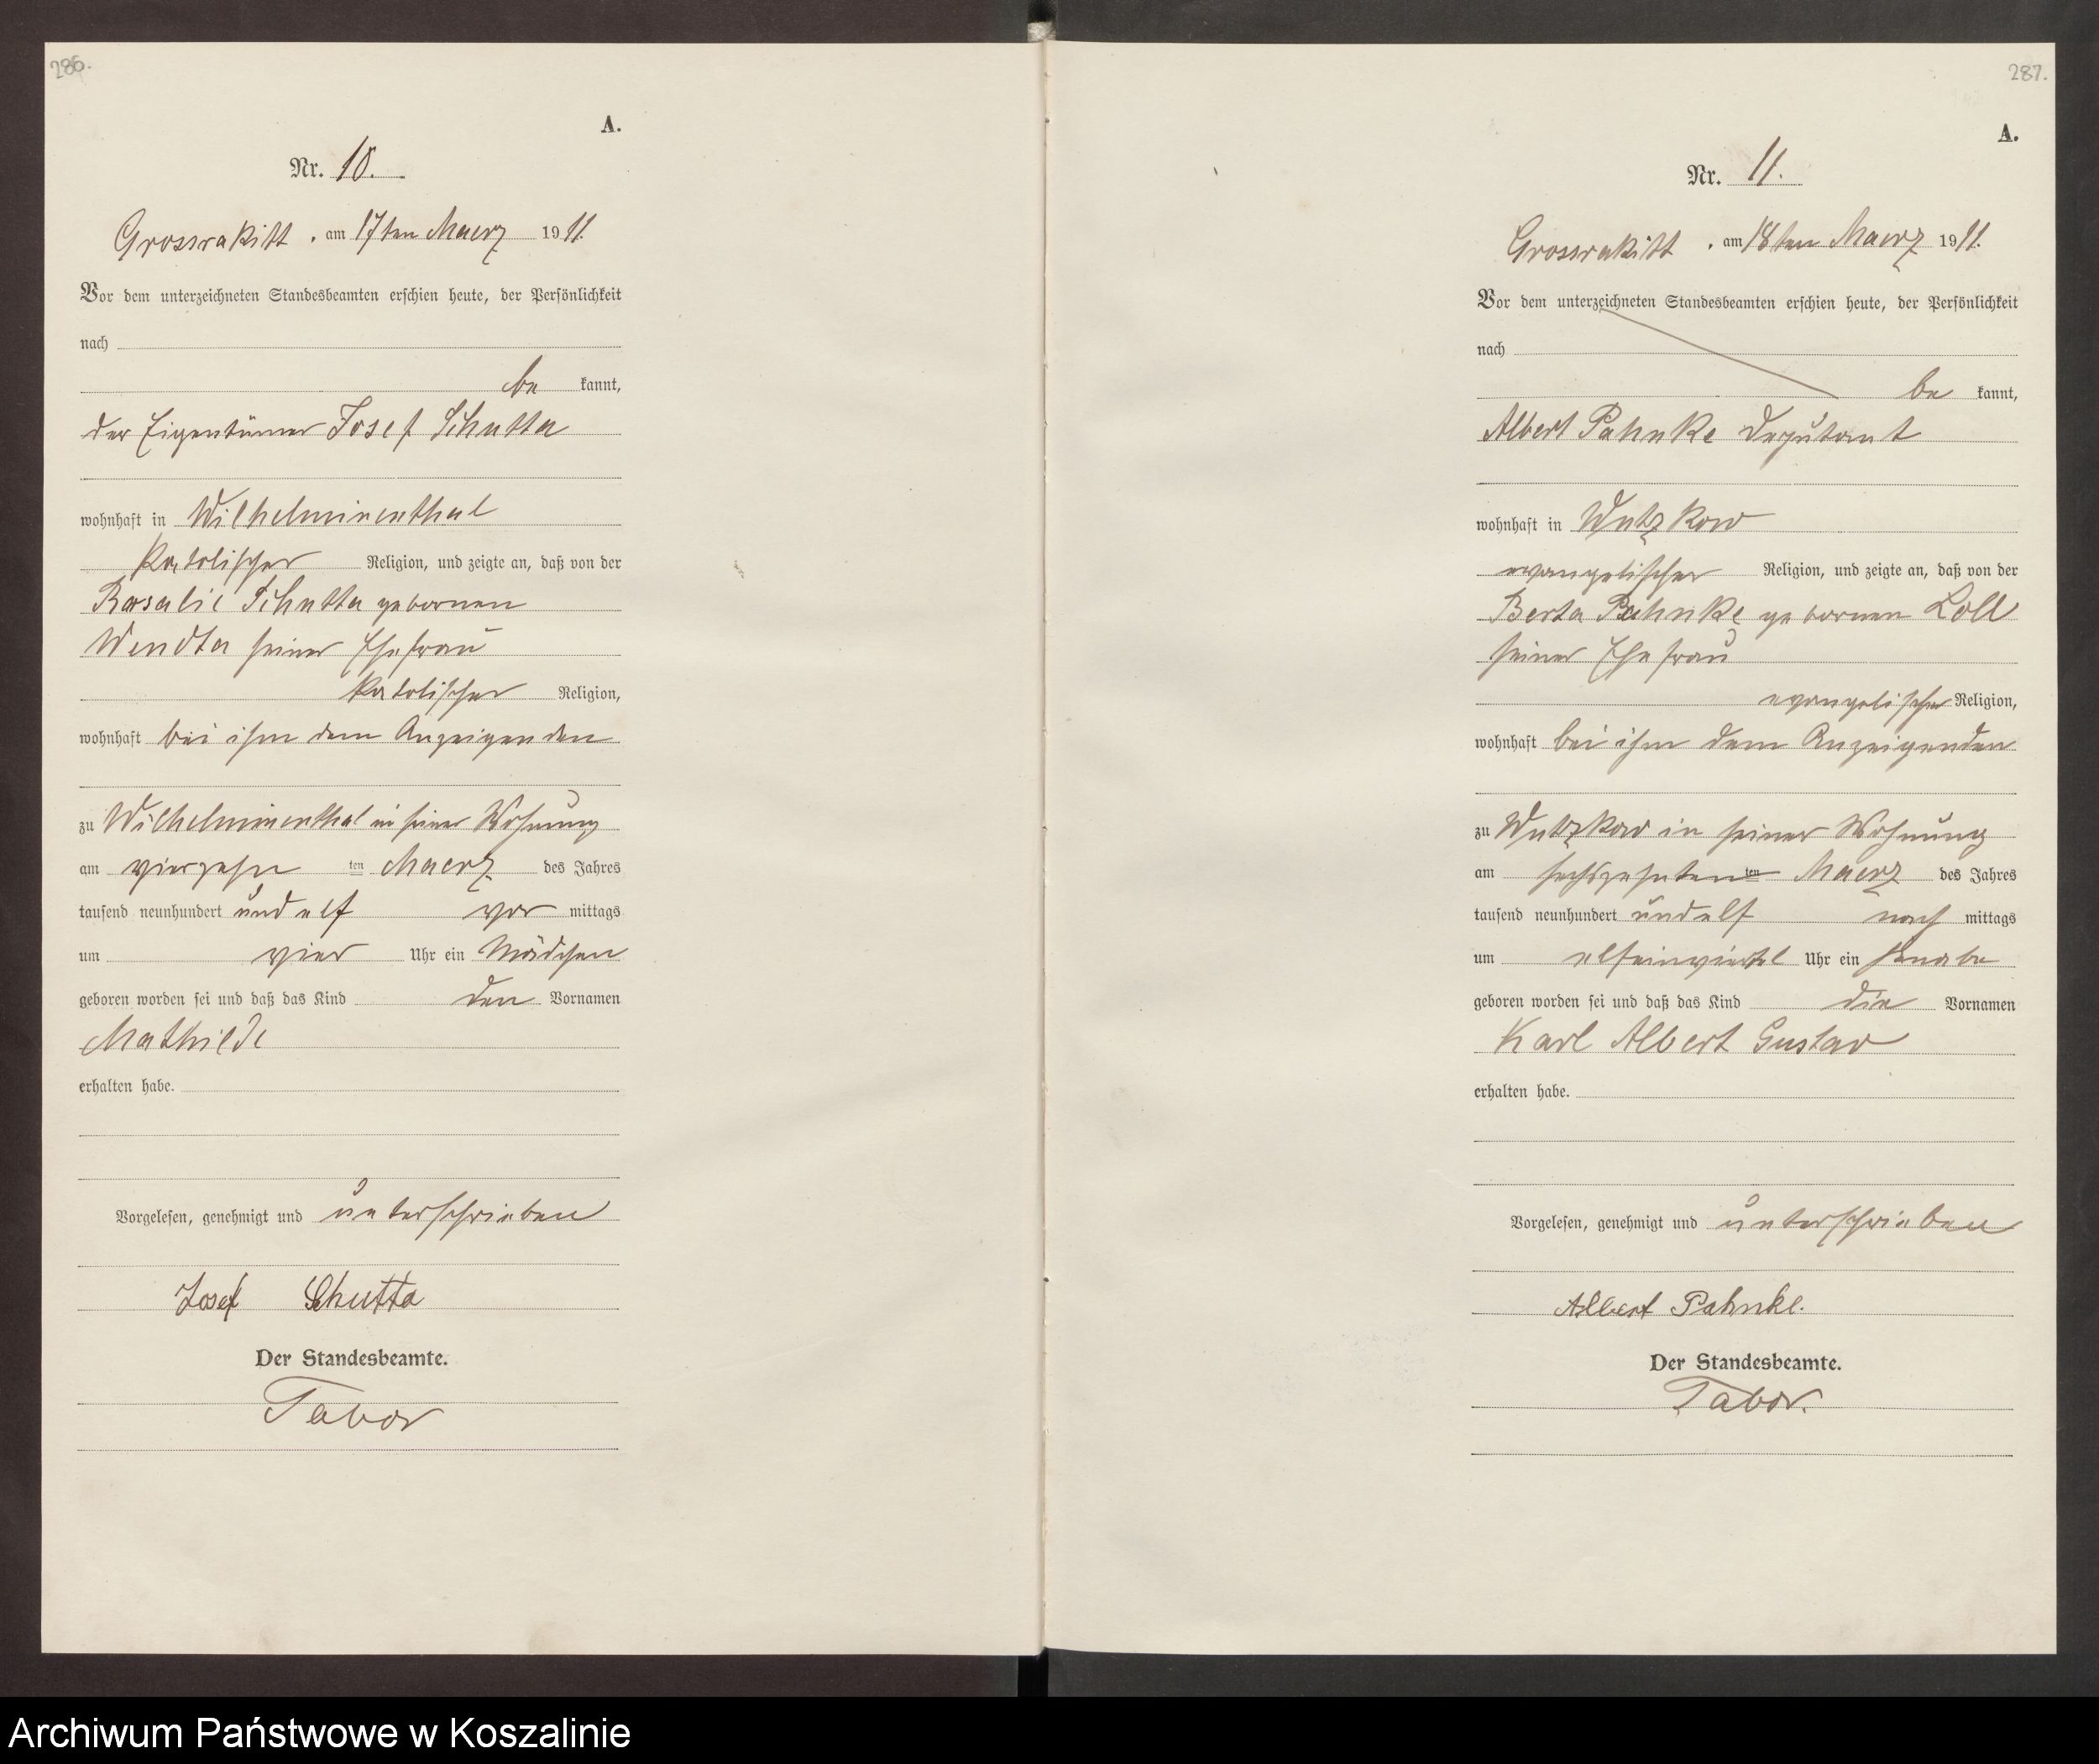 286.
A.
Nr. 10.
Grossrakitt, am 17ten Maerz 1911.
Vor dem unterzeichneten Standesbeamten erschien heute, der Persönlichkeit
nach
be kannt,
der Eigentümer Josef Schutta
wohnhaft in Wilhelminenthal
katolischer Religion, und zeigte an, daß von der
Rosalie Schutta gebornen
Wendta seiner Ehefrau
katolischer Religion,
wohnhaft bei ihm dem Anzeigenden
zu Wilhelminenthal in seiner Wohnung
am vierzehn ten Maerz des Jahres
tausend neunhundert und elf vor mittags
um vier Uhr ein Mädchen
geboren worden sei und daß das Kind den Vornamen
Mathilde
erhalten habe.
Vorgelesen, genehmigt und unterschrieben
Josef Schutta
Der Standesbeamte.
Tabor
287.
A.
Nr. 11.
Grossrakitt, am 18ten Maerz 1911.
Vor dem unterzeichneten Standesbeamten erschien heute, der Persönlichkeit
nach
be kannt,
Albert Pahnke Deputant
wohnhaft in Wutzkow
evangelischer Religion, und zeigte an, daß von der
Berta Pahnke gebornen Loll
seiner Ehefrau
evangelischer Religion,
wohnhaft bei ihm dem Anzeigenden
zu Wutzkow in seiner Wohnung
am sechszehnten ten Maerz des Jahres
tausend neunhundert und elf nach mittags
um elfeinviertel Uhr ein Knabe
geboren worden sei und daß das Kind die Vornamen
Karl Albert Gustav
erhalten habe.
Vorgelesen, genehmigt und unterschrieben
Albert Pahnke.
Der Standesbeamte.
Tabor.
Archiwum Państwowe w Koszalinie